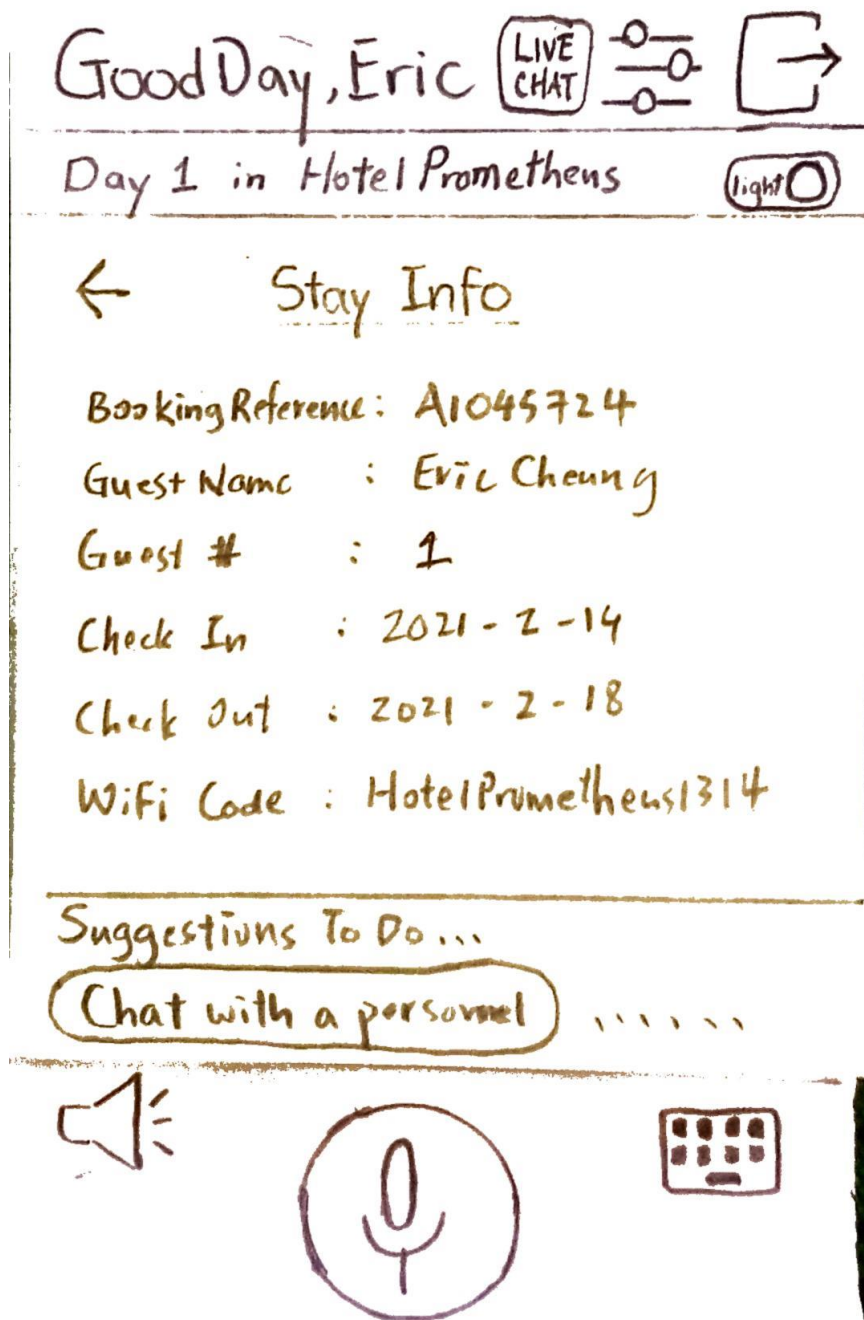 Good Day, Eric LIVE CHAT
Day 1 in Hotel Prometheus light
Stay Info
Booking Reference: A1045724
Guest Name : Eric Cheung
Guest # : 1
Check In : 2021-2-14
Check Out : 2021-2-18
WiFi Code : HotelPrometheus1314
Suggestions To Do...
Chat with a personnel ......